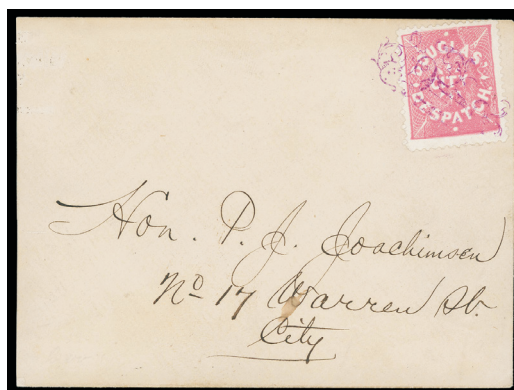 DOUGLAS
CITY
DESPATCH
Hon. P. J. Joachimsen
No 17 Warren St.
City